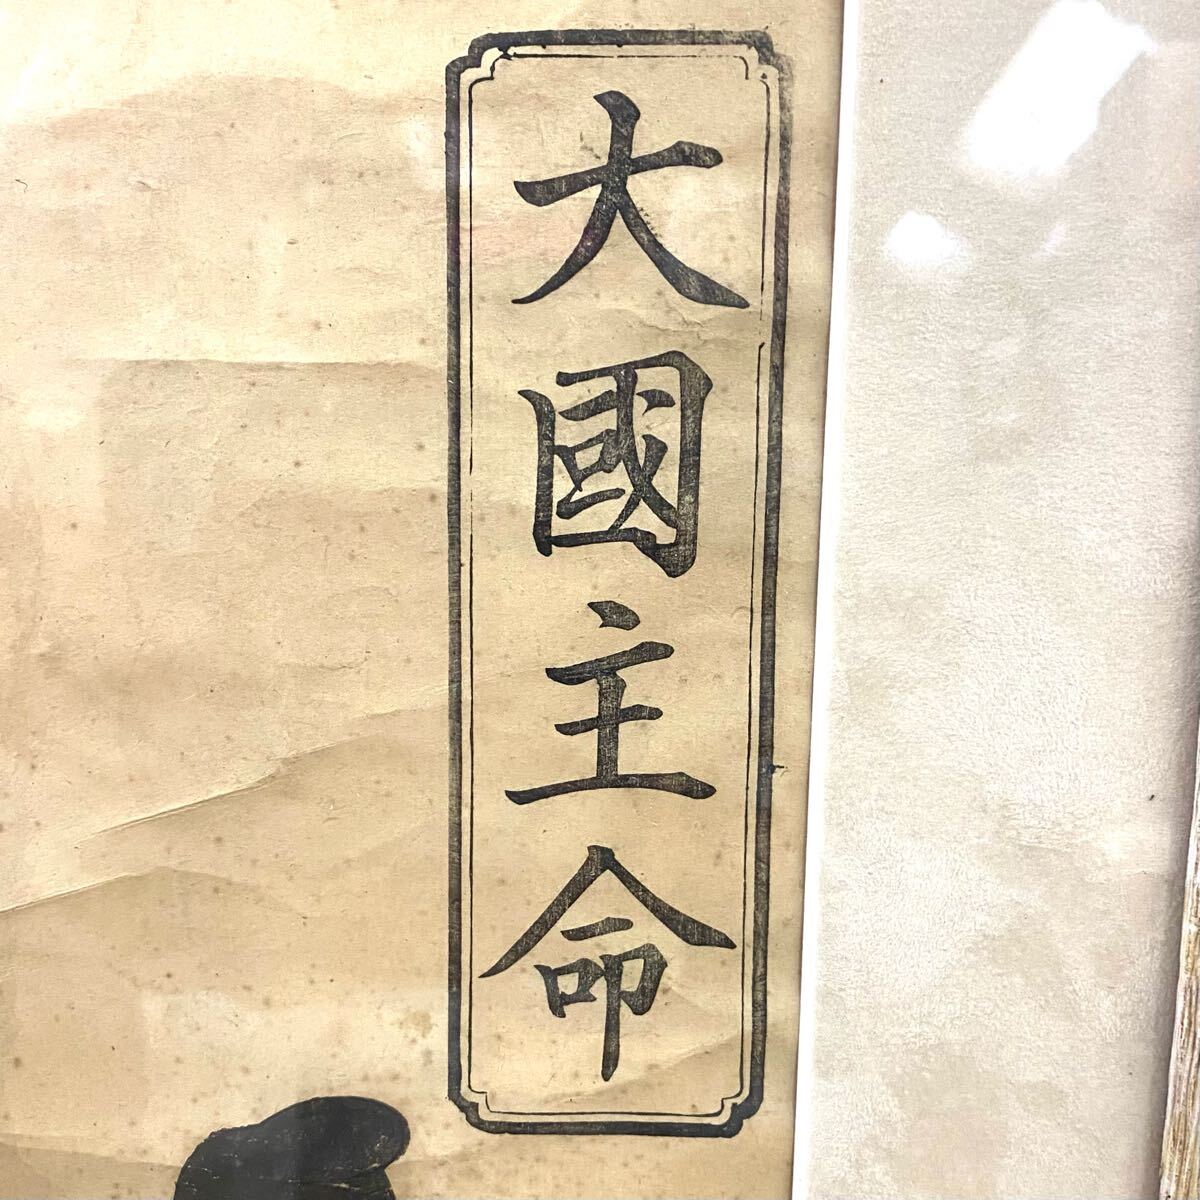 大國主命